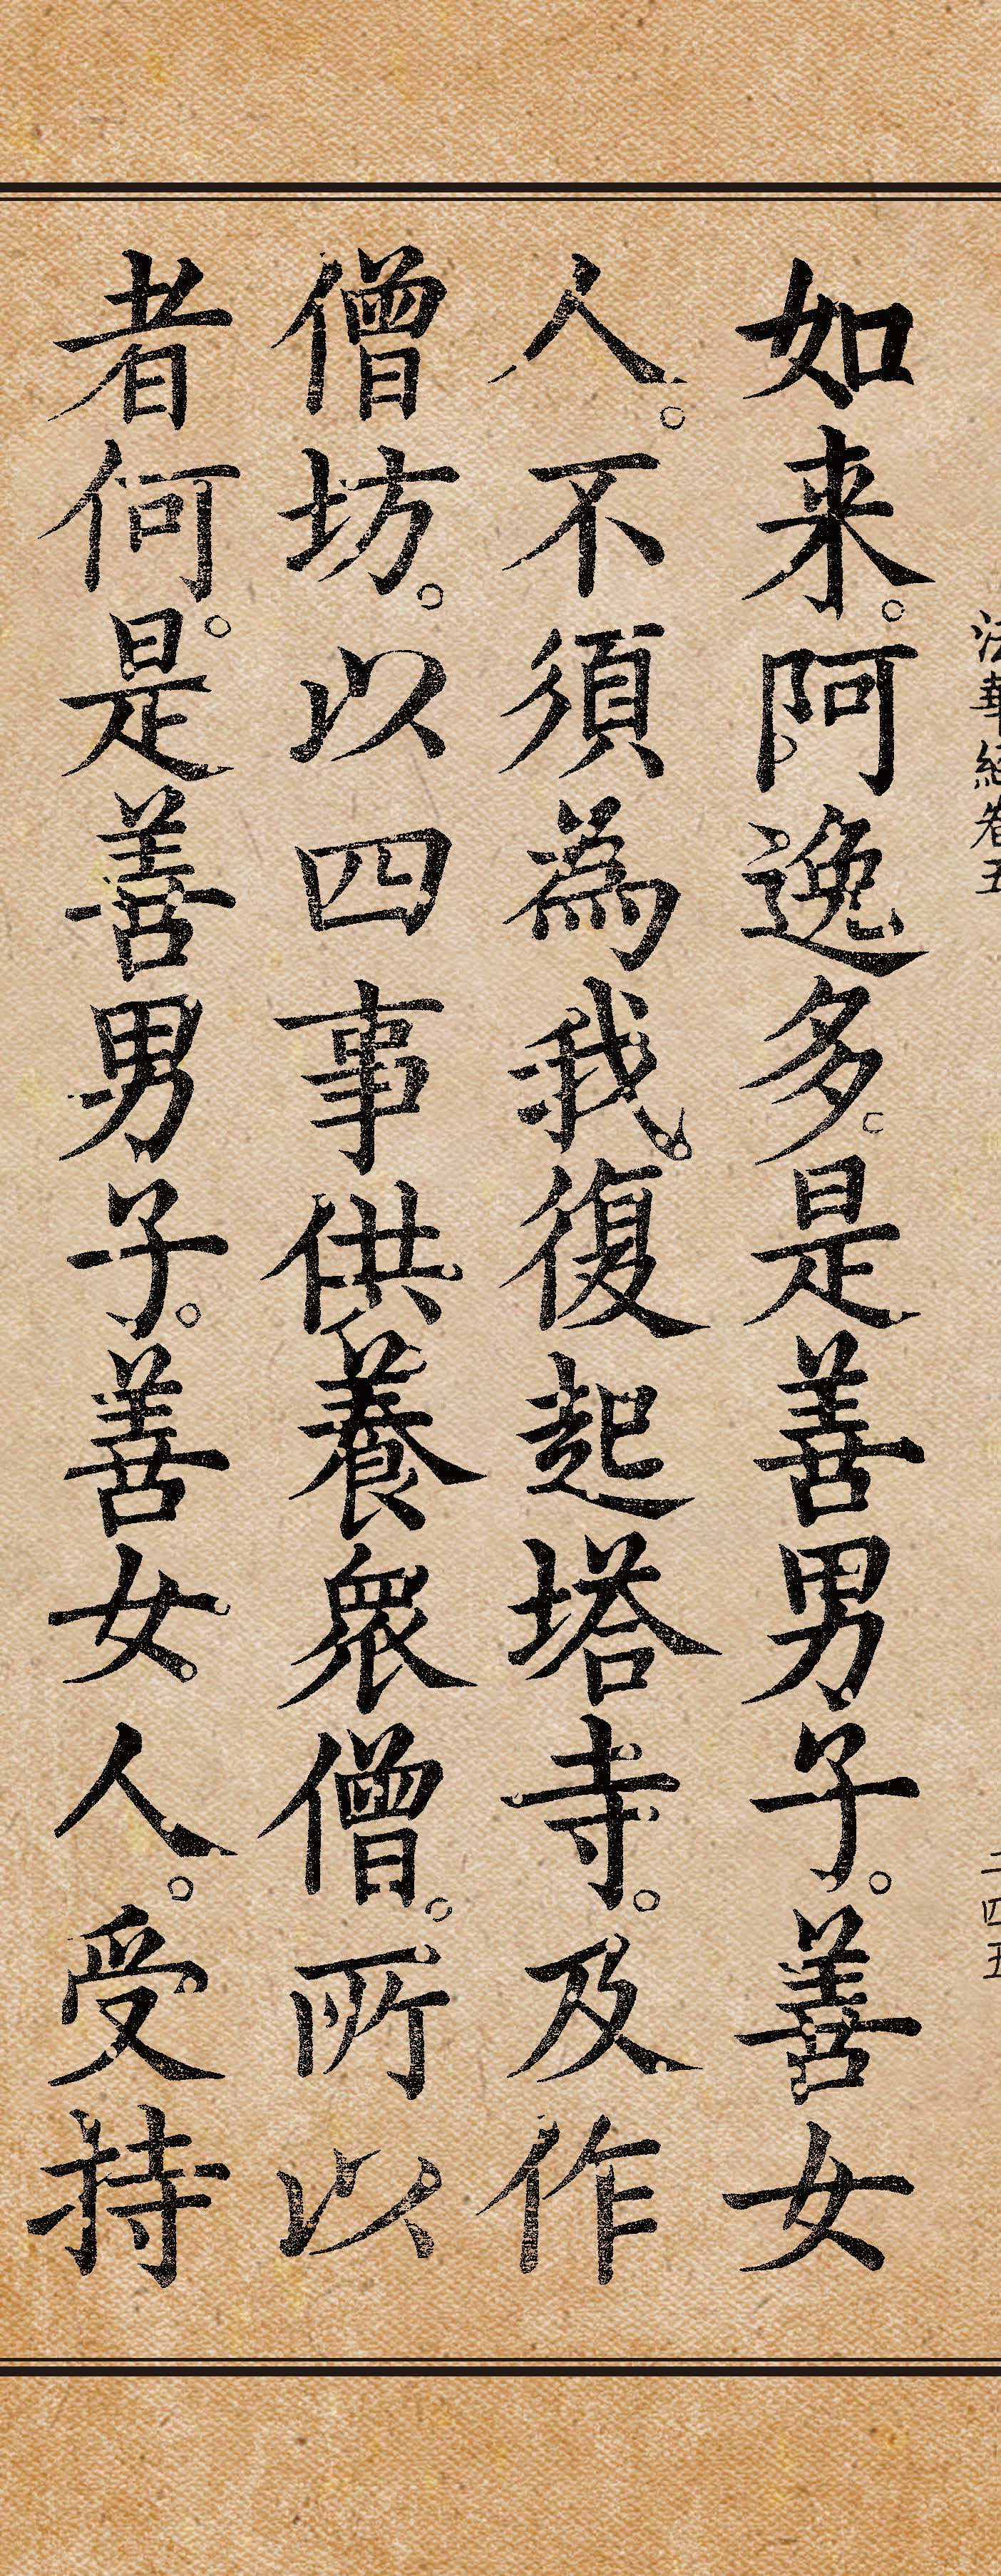 法華經卷五
二四五
如来。阿逸多。是善男子。善女
人。不須為我。復起塔寺。及作
僧坊。以四事供養衆僧。所以
者何。是善男子。善女人。受持